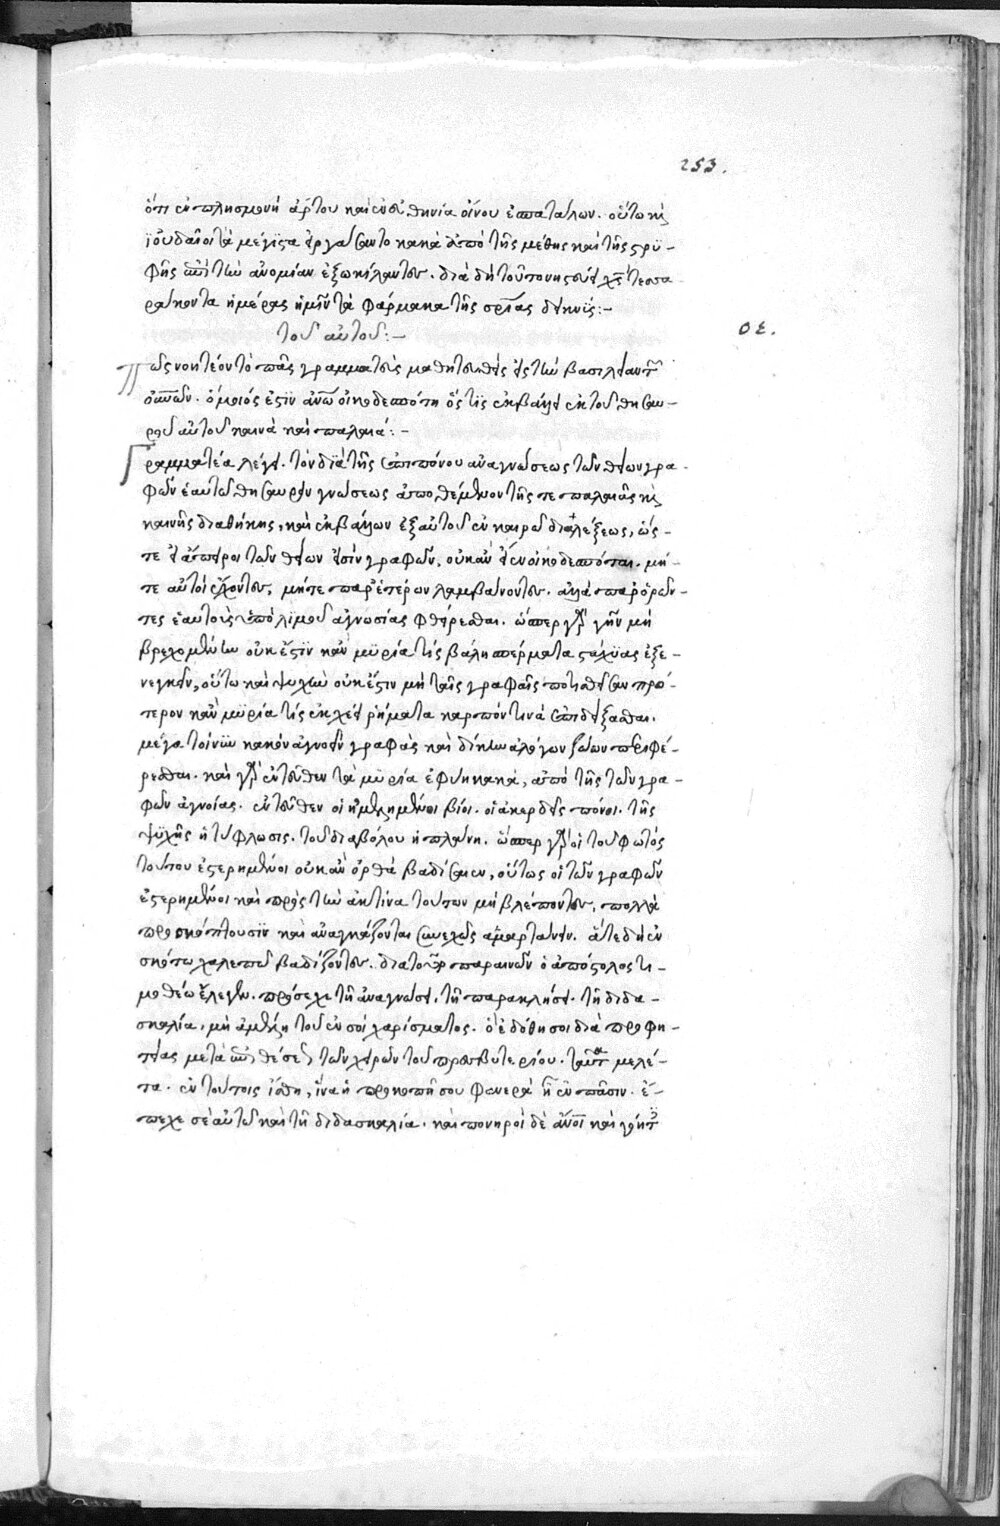 253.
ὅτι ἐν πλησμονῇ ἄρτου καὶ ἐν εὐθηνία οἴνου ἐσπατάλων. οὕτω κ(αὶ)
ἰουδαῖοι τὰ μέγιστα εἰργάσαντο κακὰ ἀπὸ τῆς μέθης καὶ τῆς τρυ-
φῆς ἐπὶ τὴν ἀνομίαν ἐξωκείλαντες. διὰ δὴ τοῦτο νηστεύει χς τεσσα
ράκοντα ἡμέρας ἡμῖν τὰ φάρμακα τῆς σρίας δεικνύς:-
τοῦ αὐτοῦ:-
οε.
Πῶς νοητέον τὸ πᾶς γραμματεὺς μαθητευθεὶς εἰς τὴν βασιλείαν τῶν
οὐνῶν. ὅμοιός ἐστιν ἀνω οἰκοδεσπότη ὅς τις ἐκβάλλει ἐκ τοῦ θησαυ-
ροῦ αὐτοῦ καινὰ καὶ παλαιά:-
Γραμματέα λέγει. τὸν διὰ τῆς ἐπιπόνου ἀναγνώσεως τῶν θείων γρα-
φῶν ἑαυτῶ θησαυρὸν γνώσεως ἀποθέμενον τῆς τε παλαιᾶς κ(αὶ)
καινῆς διαθήκης, καὶ ἐκβάλλων ἐξ αὐτοῦ ἐν καιρῶ διαλέξεως, ὥς-
τε εἰ ἄπειροι τῶν θείων εἰσὶν γραφῶν, οὐκ ἂν εἶεν οἰκοδεσπόται. μή-
τε αὐτοὶ ἔχοντες, μήτε παρ' ἑτέρων λαμβάνοντες. ἀλλὰ παρορῶν-
τες ἑαυτοὺς ὑπὸ λιμοῦ ἀγνωσίας φθείρεσθαι. ὥσπερ γὰρ γῆν μὴ
βρεχομένην οὐκ ἔστιν κἂν μυρία τίς βάλη σπέρματα στάχυας ἐξε-
νεγκεῖν, οὕτω καὶ ψυχὴν οὐκ ἔστιν μὴ ταῖς γραφαῖς ποτισθεῖσαν πρό-
τερον κἂν μυρία τίς ἐκχέει ῥήματα καρπόν τινὰ ἐπιδείξασθαι.
μέγα τοίνυν κακὸν ἀγνοεῖν γραφὰς καὶ δίκην ἀλόγων ζώων περιφέ-
ρεσθαι. καὶ γὰρ ἐντεῦθεν τὰ μυρία ἐφύη κακὰ, ἀπὸ τῆς τῶν γρα-
φῶν ἀγνοίας. ἐντεῦθεν οἱ ἠμελημένοι βίοι. οἱ ἀκερδεῖς πόνοι. τῆς
ψυχῆς ἡ τύφλωσις. τοῦ διαβόλου ἡ πλάνη. ὥσπερ γὰρ οἱ τοῦ φωτὸς
τούτου ἐστερημένοι οὐκ ἂν ὀρθὰ βαδίσαιεν, οὕτως οἱ τῶν γραφῶν
ἐστερημένοι καὶ πρὸς τὴν ἀκτίνα τούτων μὴ βλέποντες, πολλὰ
προσκόπτουσιν καὶ ἀναγκάζονται συνεχῶς ἁμαρτάνειν. ἅτε δὴ ἐν
σκότω χαλεπῶ βαδίζοντες. διατοῦτο παραινῶν ὁ ἀπόστολος τι-
μοθέω ἔλεγεν. πρόσεχε τῆ ἀναγνώσει, τῆ παρακλήσει. τῆ διδα-
σκαλία, μὴ ἀμέλει τοῦ ἐν σοὶ χαρίσματος. ὃ ἐδόθη σοι διὰ προφη-
τείας μετὰ ἐπιθέσεως τῶν χειρῶν τοῦ πρεσβυτερίου. ταῦτα μελέ-
τα. ἐν τούτοις ἴσθι, ἵνα ἡ προκοπή σου φανερὰ ἦ ἐν πᾶσιν. ἔ-
πεχε σεαυτῶ καὶ τῆ διδασκαλία. καὶ πονηροὶ δὲ ἄνοι καὶ γόητες